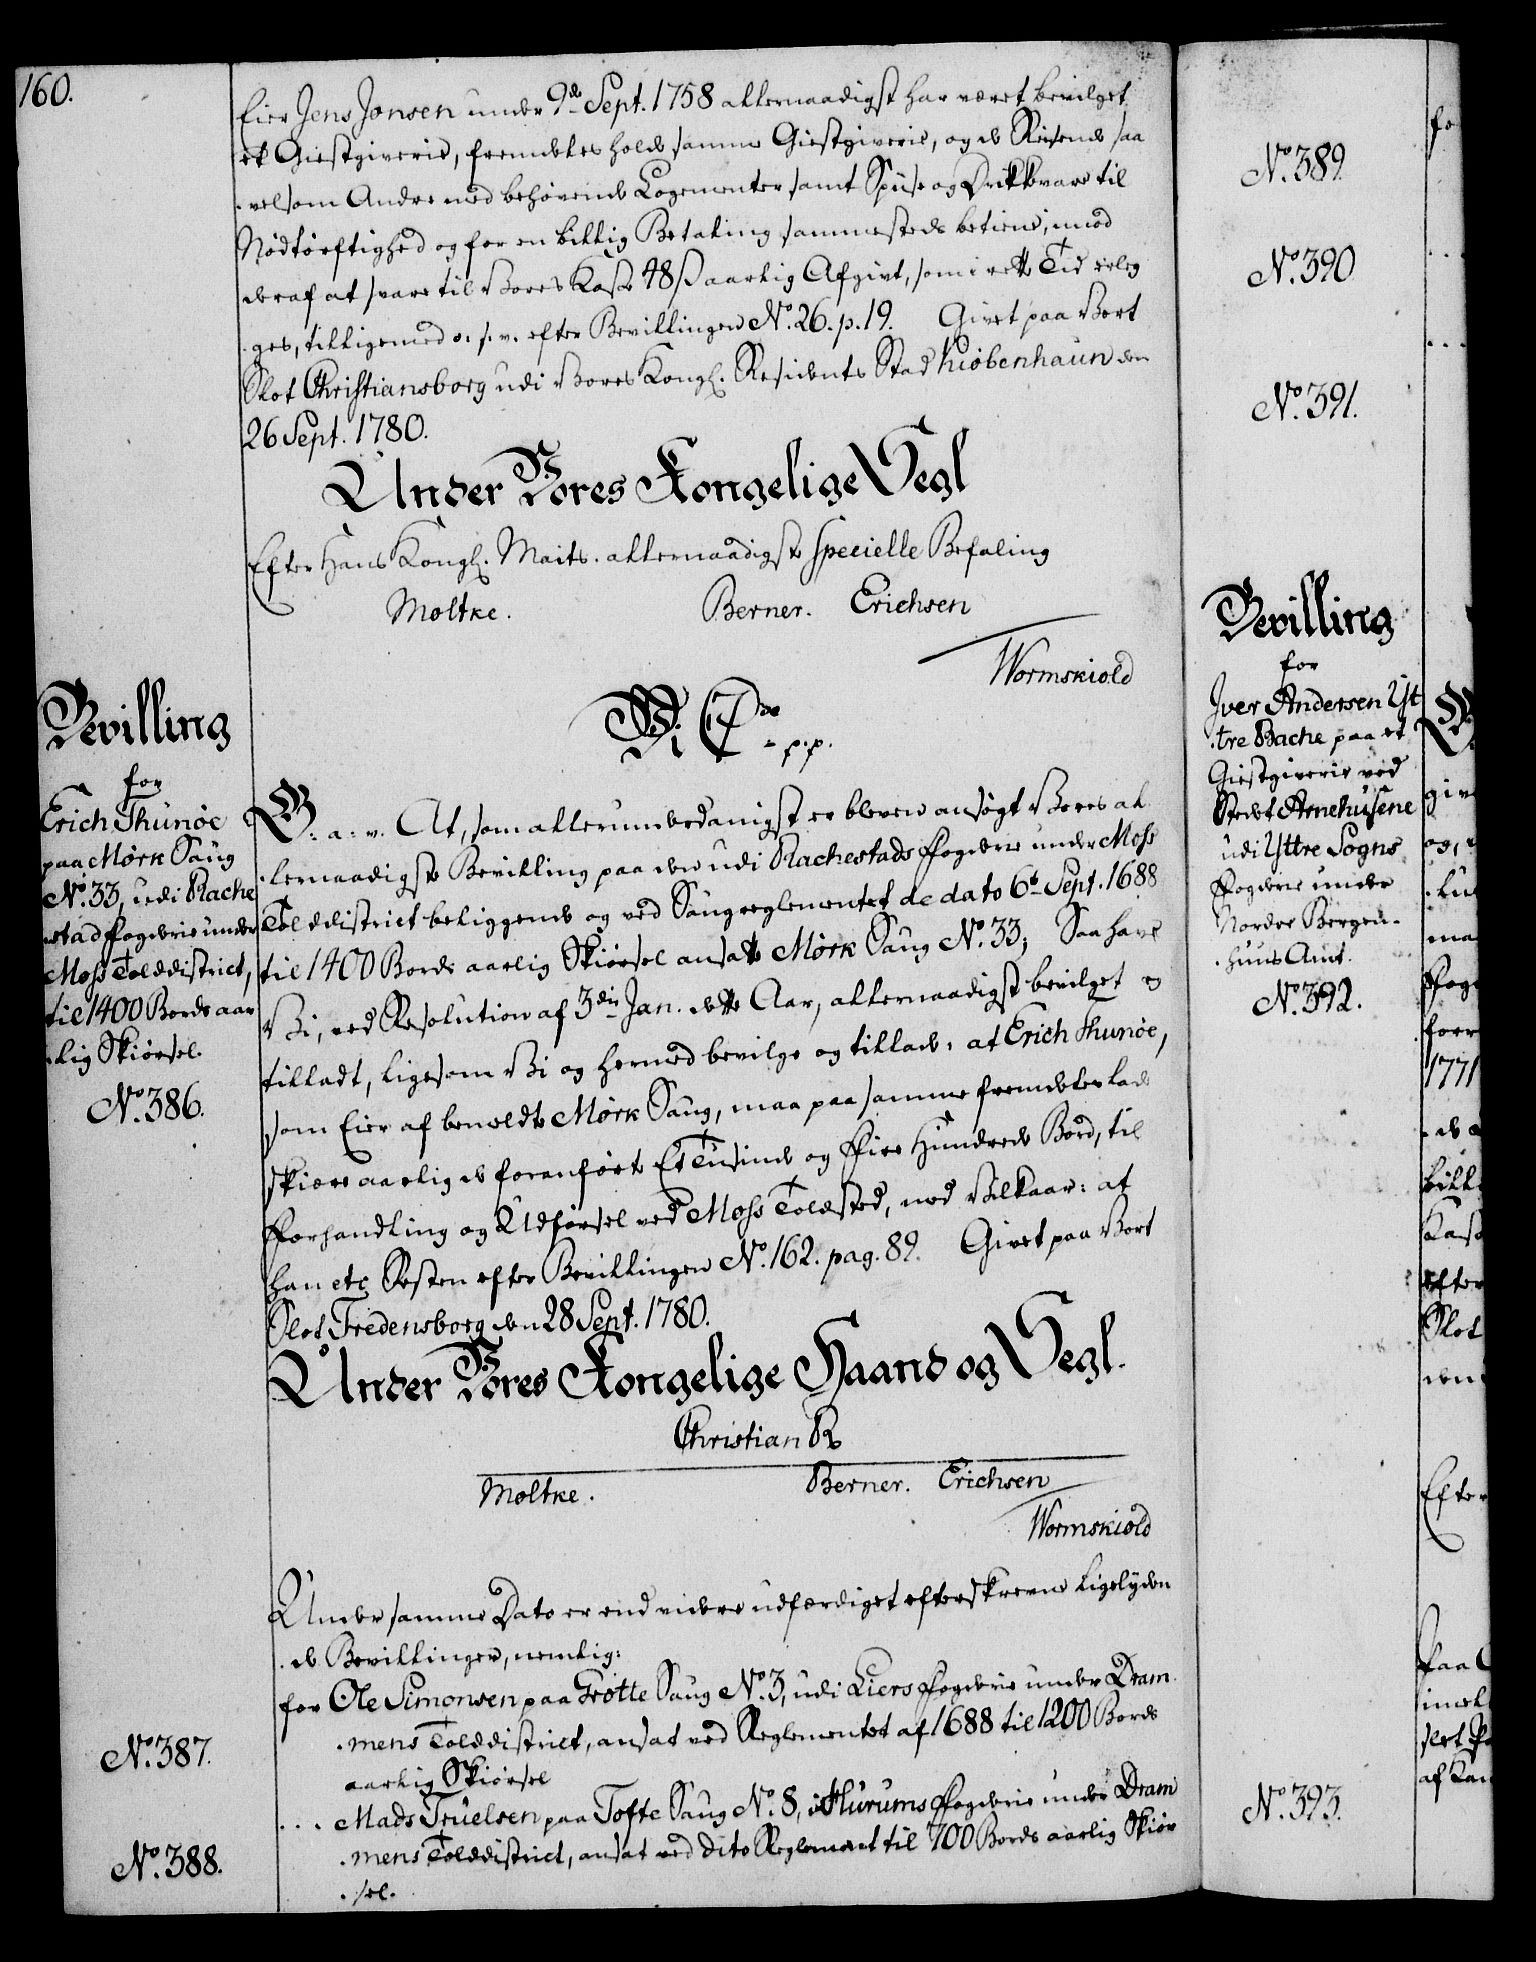 160.
Eier Jens Jonsen under 9de Sept. 1758 allernaadigst har været bevilget
et Giestgiverie, fremdeles holde samme Giestgiverie, og de Reisende saa
velsom Andre med behøvende Logementer samt Spiise og Drikkevare til
Nödtörftighed og for en billig Betaling sammesteds betiene; imod
deraf at svare til Vores Kasse 48 ß aarlig Afgivt, som i rette Tid erleg
ges, tilligemed o. s. v. efter Bevillingen No. 26. p. 19. Givet paa Vort
Slot Christiansborg udi Vores Kongl. Residents Stad Kiöbenhaun den
26 Sept. 1780.
Under Vores Kongelige Segl
Efter Hans Kongl. Maits. allernaadigste specielle Befaling
Moltke. Berner. Erichsen
Wormskiold
Bevilling
for
Erich Thunöe
paa Mørk Saug
No. 33, udi Rache
stad Fogderie under
Moss Tolddistrict,
til 1400 Bords aar
lig Skiørsel.
No. 386.
Vi C 7de - p. p.
G: a: v. At, som allerunderdanigst er bleven ansøgt Vores al
lernaadigste Bevilling paa den udi Rachestads Fogderie under Moss
Tolddistrict beliggende og ved Saugreglementet de dato 6t Sept. 1688
til 1400 Bords aarlig Skiørsel ansatte Mørk Saug No. 33; Saa have
Vi, ved Resolution af 3die Jan. dette Aar, allernaadigst bevilget og
tilladt, ligesom Vi og hermed bevilge og tillade: at Erich Thunöe,
som Eier af bemeldte Mørk Saug, maa paa samme fremdeles lade
skiære aarlig de foranførte Et Tusinde og Fire Hundrede Bord, til
Forhandling og Udførsel ved Moss Toldsted, med Vilkaar: at
han etc Resten efter Bevillingen No. 162. pag. 89. Givet paa Vort
Slot Fredensborg den 28 Sept. 1780.
Under Vores Kongelige Haand og Segl.
Christian R
Moltke. Berner. Erichsen
Wormskiold
Under samme Dato er end videre udfærdiget efterskrevne ligelyden
de Bevillinger, nemlig:
for Ole Simonsen paa Grötte Saug No. 3, udi Liers Fogderie under Dram
mens Tolddistrict, ansat ved Reglementet af 1688 til 1200 Bords
aarlig Skiørsel
No. 387.
... Mads Truelsen paa Tofte Saug No. 8, i Hurums Fogderie under Dram
mens Tolddistrict, ansat ved dito Reglement til 700 Bords aarlig Skiör
sel.
No. 388.
No. 389.
No. 390
No. 391.
Bevilling
for
Iver Andersen Yt
tre Bache paa et
Giestgiverie ved
Stedet Arnehusene
udi Yttre Sogns
Fogderie under
Nordre Bergen
huus Amt.
No. 392.
No. 393.
1771
Slot
Efter